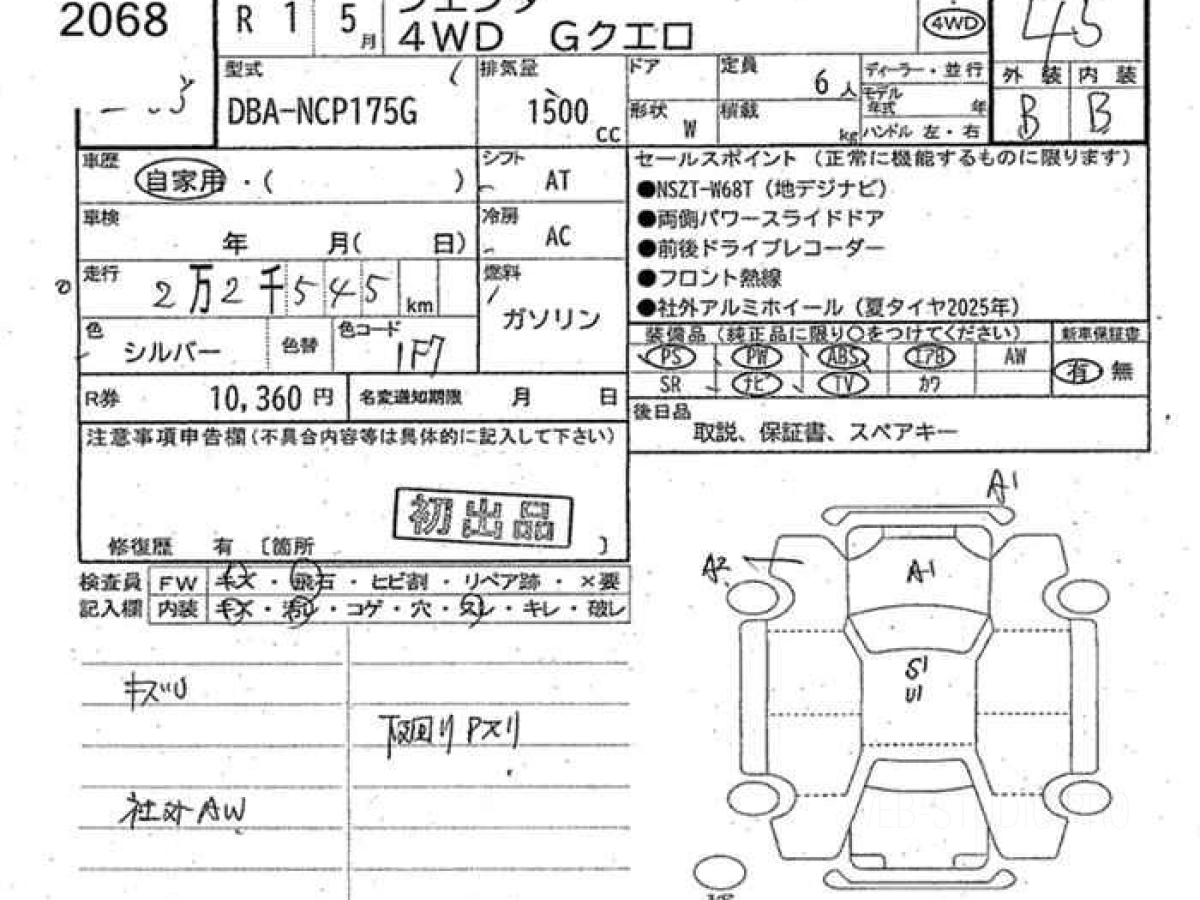 2068
R 1 5月
4WD Gクエロ
4WD
45
型式
DBA-NCP175G
排気量
1500 cc
ドア
定員
6人
形状
W
積載
kg
ディーラー・並行
モデル年式 年
ハンドル 左・右
外装 内装
B B
車歴
自家用・( )
シフト
AT
車検
年 月( 日)
冷房
AC
走行
2万2千545km
燃料
ガソリン
色
シルバー
色替
色コード
1F7
R券 10,360円
名変通知期限 月 日
セールスポイント (正常に機能するものに限ります)
●NSZT-W68T (地デジナビ)
●両側パワースライドドア
●前後ドライブレコーダー
●フロント熱線
●社外アルミホイール (夏タイヤ2025年)
装備品 (純正品に限り○をつけてください)
新車保証書
PS PW ABS エアB AW
SR ナビ TV カワ
有 無
後日品
取説、保証書、スペアキー
注意事項申告欄(不具合内容等は具体的に記入して下さい)
初出品
修復歴 有 〔箇所 〕
検査員 FW キズ・飛石・ヒビ割・リペア跡・×要
記入欄 内装 キズ・汚レ・コゲ・穴・スレ・キレ・破レ
キズU
下回りPスリ
社外AW
A1
A2
A1
S1
U1